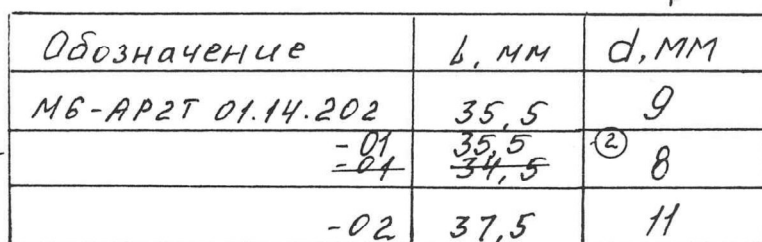 Обозначение L, мм d, мм
М6-АР2Т 01.14.202 35,5 9
-01 35,5 ②
-01 34,5 8
-02 37,5 11